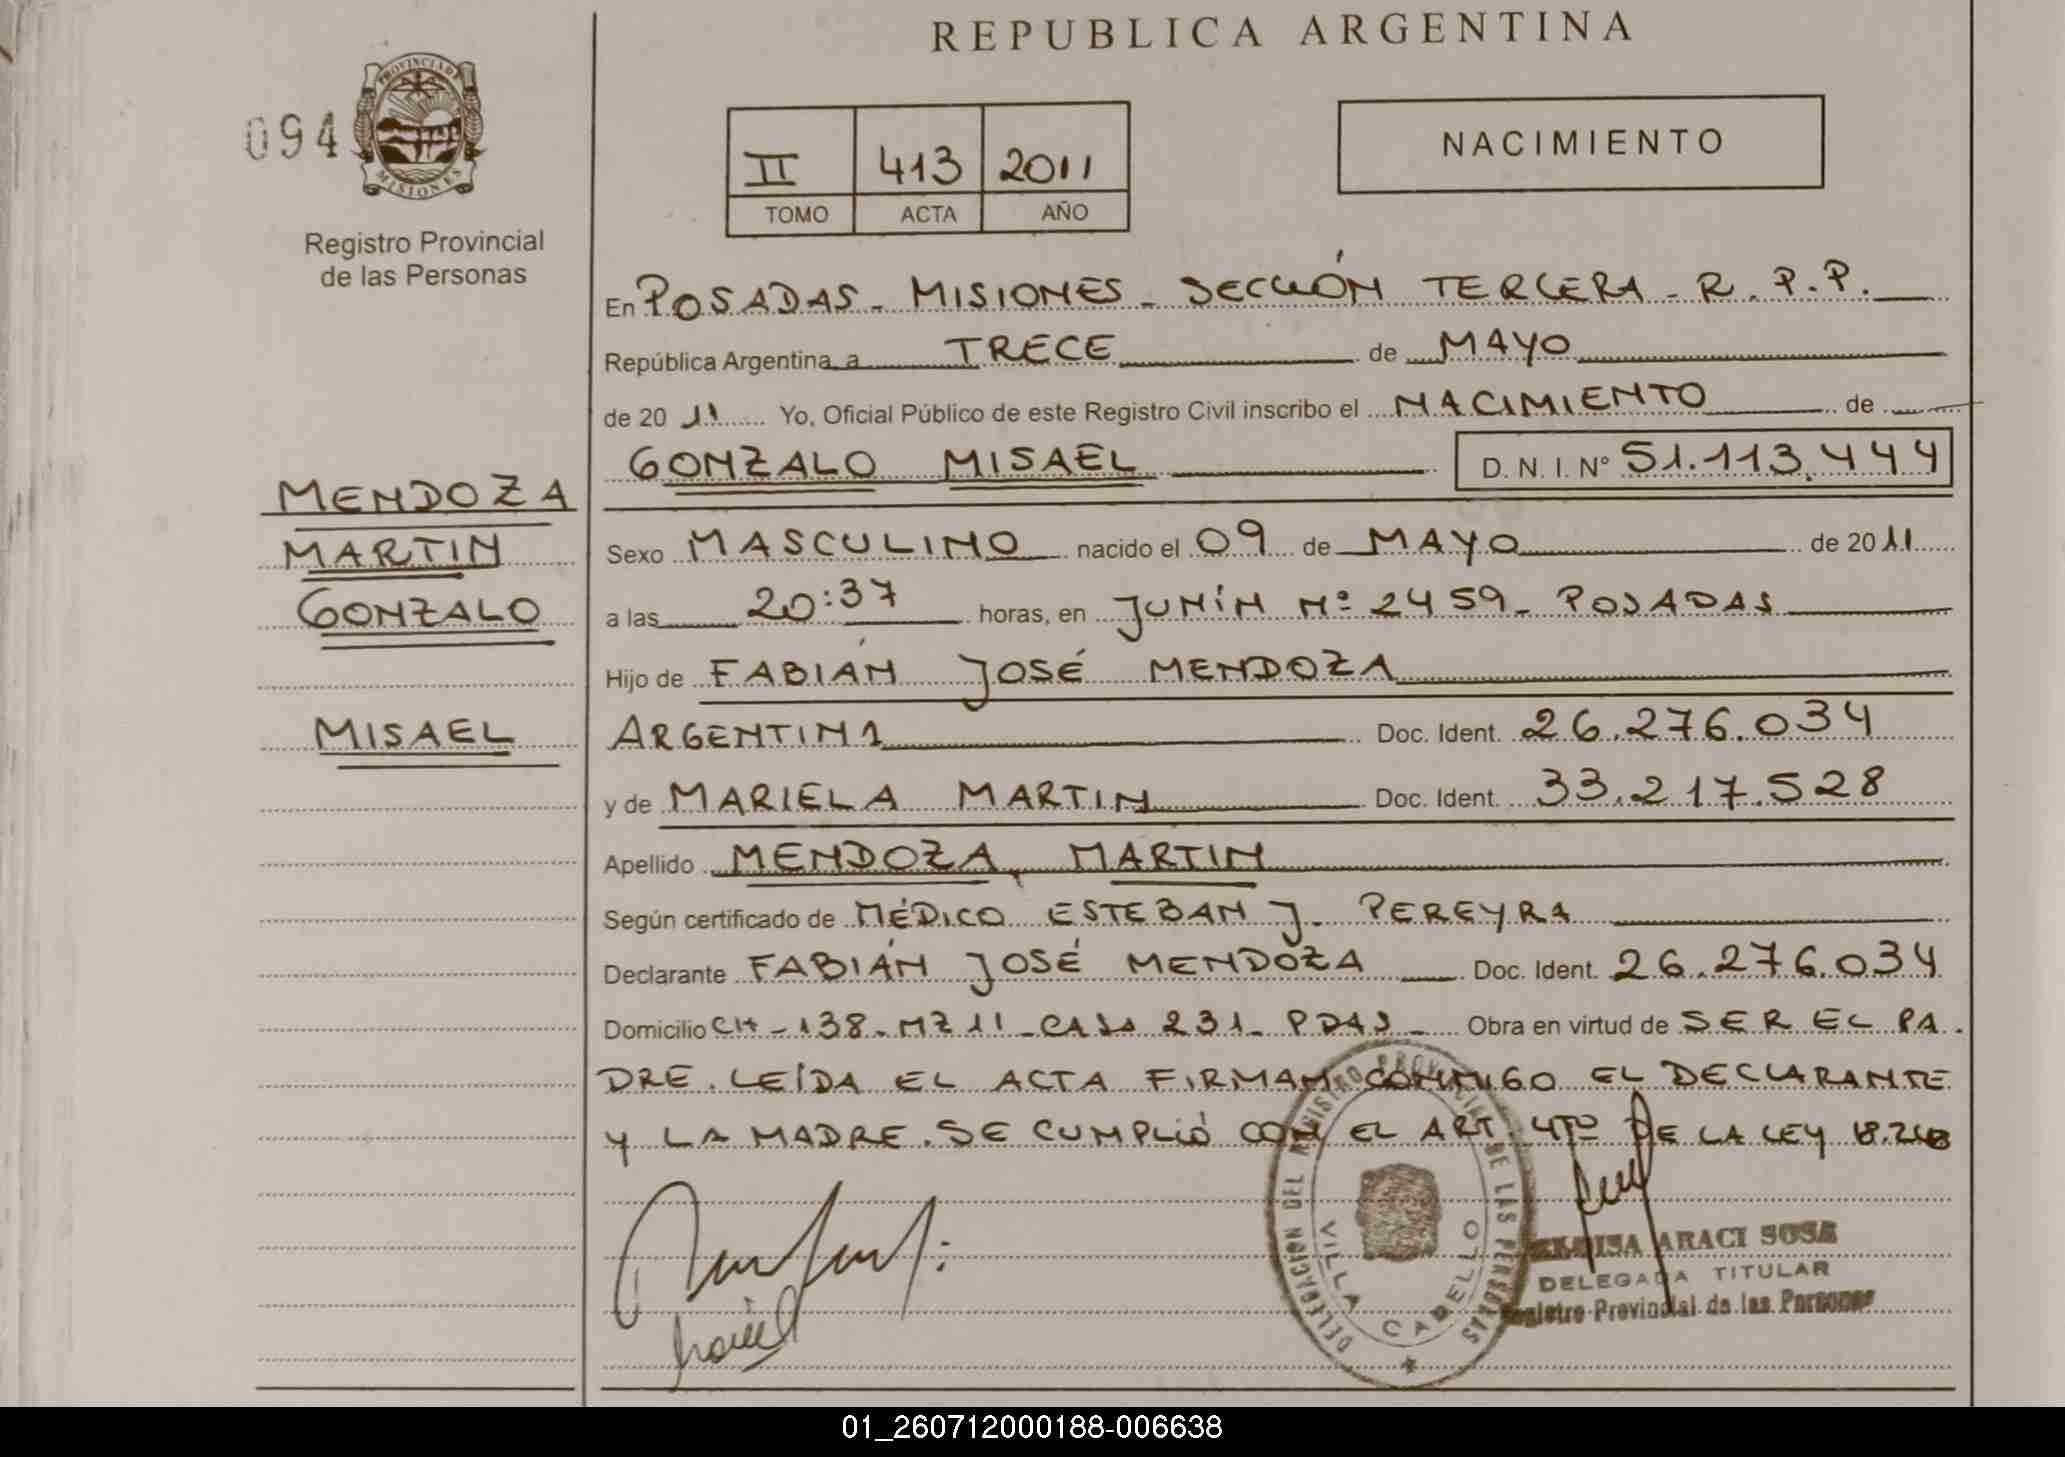 REPUBLICA ARGENTINA
094
PROVINCIA DE MISIONES
Registro Provincial
de las Personas
II 413 2011
TOMO ACTA AÑO
NACIMIENTO
En POSADAS - MISIONES - SECCIÓN TERCERA - R. P. P.
República Argentina a TRECE de MAYO
de 20 11 Yo, Oficial Público de este Registro Civil inscribo el NACIMIENTO de
GONZALO MISAEL D. N. I. N° 51.113.444
MENDOZA
MARTIN
GONZALO
MISAEL
Sexo MASCULINO nacido el 09 de MAYO de 20 11
a las 20:37 horas, en JUNÍN Nº 2459 - POSADAS
Hijo de FABIÁN JOSÉ MENDOZA
ARGENTINA Doc. Ident. 26.276.034
y de MARIELA MARTIN Doc. Ident. 33.217.528
Apellido MENDOZA MARTIN
Según certificado de MÉDICO ESTEBAN J. PEREYRA
Declarante FABIÁN JOSÉ MENDOZA Doc. Ident. 26.276.034
Domicilio CH - 138 - MZ 11 - CASA 231 - PDAS - Obra en virtud de SER EL PA
DRE. LEÍDA EL ACTA FIRMAN CONMIGO EL DECLARANTE
Y LA MADRE. SE CUMPLIÓ CON EL ART. 4TO DE LA LEY 18.248
DELEGACION DEL REGISTRO PROVINCIAL DE LAS PERSONAS
VILLA CABELLO
ARACI SOSA
DELEGADA TITULAR
Registro Provincial de las Personas
01_260712000188-006638